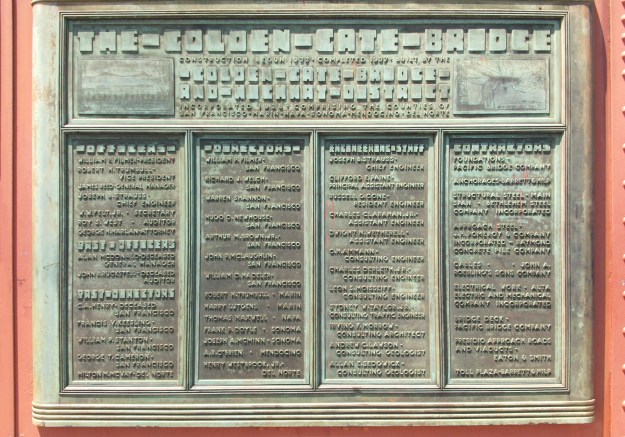 THE-GOLDEN-GATE-BRIDGE
CONSTRUCTION BEGUN 1933 · COMPLETED 1937 · BUILT BY THE
-GOLDEN-GATE-BRIDGE-
AND-HIGHWAY-DISTRICT
INCORPORATED 1928 · COMPRISING THE COUNTIES OF
SAN FRANCISCO · MARIN · NAPA · SONOMA · MENDOCINO · DEL NORTE
OFFICERS
WILLIAM P. FILMER-PRESIDENT
ROBERT H. TRUMBULL-
VICE PRESIDENT
JAMES REED-GENERAL MANAGER
JOSEPH B. STRAUSS-
CHIEF ENGINEER
W.W. FELT, JR. - SECRETARY
ROY S. WEST AUDITOR
GEORGE H. HARLAN-ATTORNEY
PAST-OFFICERS
ALAN MCDONALD-DECEASED
GENERAL MANAGER
JOHN R. RUCKSTELL-DECEASED
AUDITOR
PAST-DIRECTORS
C.A. HENRY-DECEASED
SAN FRANCISCO
FRANCIS V. KEESLING-
SAN FRANCISCO
WILLIAM P. STANTON-
SAN FRANCISCO
GEORGE T. CAMERON-
SAN FRANCISCO
MILTON M. MCVAY-DEL NORTE
DIRECTORS
WILLIAM P. FILMER-
SAN FRANCISCO
RICHARD J. WELCH-
SAN FRANCISCO
WARREN SHANNON-
SAN FRANCISCO
HUGO D. NEWHOUSE-
SAN FRANCISCO
ARTHUR M. BROWN, JR-
SAN FRANCISCO
JOHN P. MCLAUGHLIN-
SAN FRANCISCO
WILLIAM D. HADELER-
SAN FRANCISCO
ROBERT H. TRUMBULL - MARIN
HARRY LUTGENS - MARIN
THOMAS MAXWELL - NAPA
FRANK P. DOYLE - SONOMA
JOSEPH A. MCMINN - SONOMA
A.R. O'BRIEN - MENDOCINO
HENRY WESTBROOK, JR-
DEL NORTE
ENGINEERING-STAFF
JOSEPH B. STRAUSS-
CHIEF ENGINEER
CLIFFORD E. PAINE-
PRINCIPAL ASSISTANT ENGINEER
RUSSELL G. CONE-
RESIDENT ENGINEER
CHARLES CLARAHAN, JR-
ASSISTANT ENGINEER
DWIGHT N. WETHERELL-
ASSISTANT ENGINEER
O.H. AMMANN-
CONSULTING ENGINEER
CHARLES DERLETH, JR-
CONSULTING ENGINEER
LEON S. MOISSEIFF-
CONSULTING ENGINEER
SYDNEY W. TAYLOR, JR-
CONSULTING TRAFFIC ENGINEER
IRVING F. MORROW-
CONSULTING ARCHITECT
ANDREW C. LAWSON-
CONSULTING GEOLOGIST
ALLAN E. SEDGWICK-
CONSULTING GEOLOGIST
CONTRACTORS
FOUNDATIONS-
PACIFIC BRIDGE COMPANY
ANCHORAGES-BARRETT & HILP
STRUCTURAL STEEL - MAIN
SPAN - BETHLEHEM STEEL
COMPANY INCORPORATED
APPROACH STEEL-
J.H. POMEROY & COMPANY
INCORPORATED - RAYMOND
CONCRETE PILE COMPANY
CABLES- JOHN A.
ROEBLING'S SONS COMPANY
ELECTRICAL WORK - ALTA
ELECTRIC AND MECHANICAL
COMPANY INCORPORATED
BRIDGE DECK-
PACIFIC BRIDGE COMPANY
PRESIDIO APPROACH ROADS
AND VIADUCTS-
EATON & SMITH
TOLL PLAZA-BARRETT & HILP